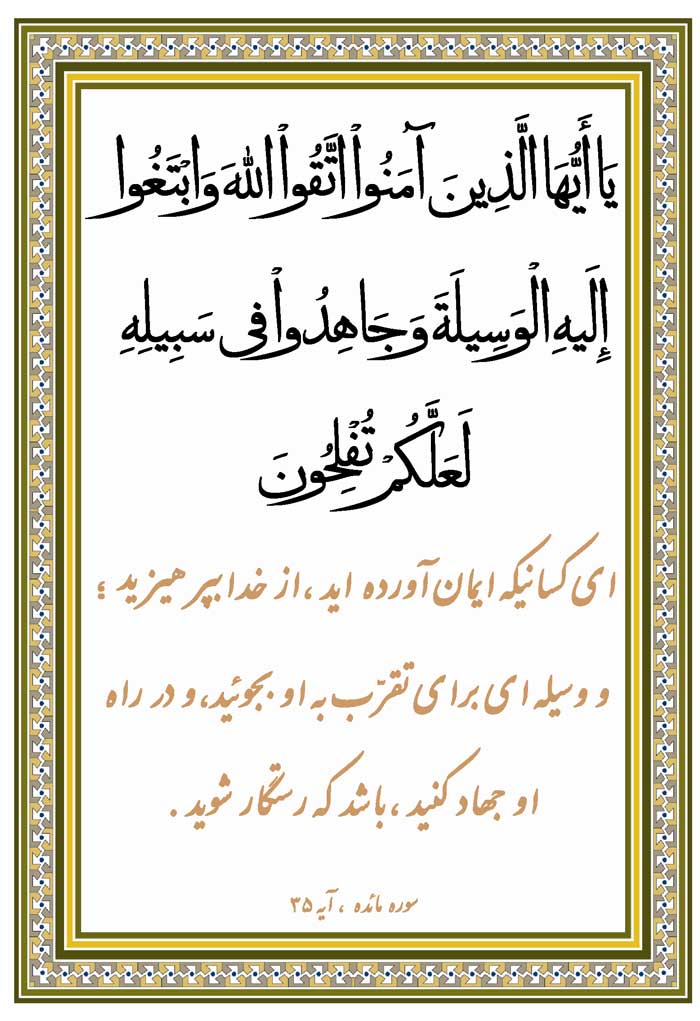 يَا أَيُّهَا الَّذِينَ آمَنُواْ اتَّقُواْ اللّهَ وَابْتَغُوا
إِلَيهِ الْوَسِيلَةَ وَجَاهِدُواْ فِي سَبِيلِهِ
لَعَلَّكُمْ تُفْلِحُونَ
ای کسانیکه ایمان آورده اید ، از خدا بپرهیزید ؛
و وسیله ای برای تقرّب به او بجوئید، و در راه
او جهاد کنید ، باشد که رستگار شوید .
سوره مائده ، آیه ۳۵